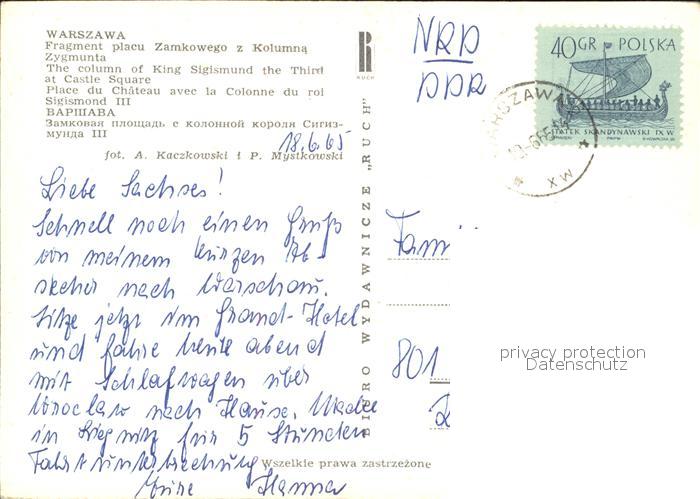 WARSZAWA
Fragment placu Zamkowego z Kolumną
Zygmunta
The column of King Sigismund the Third
at Castle Square
Place du Château avec la Colonne du roi
Sigismond III
ВАРШАВА
Замковая площадь с колонной короля Сигиз-
мунда III
fot. A. Kaczkowski i P. Mystkowski
18.6.65
Liebe Sachses!
Schnell noch einen Gruß
von meinem kurzen Ab-
stecher nach Warschau.
Sitze jetzt im Grand-Hotel
und fahre heute abend
mit Schlafwagen über
Wroclaw nach Hause. Mache
in Liegnitz für 5 Stunden
Fahrtunterbrechung
Eure Hanna
RUCH
BIURO WYDAWNICZE „RUCH"
Wszelkie prawa zastrzeżone
NRD
DDR
40GR POLSKA
STATEK SKANDYNAWSKI IX W
WARSZAWA
Fami
801
privacy protection
Datenschutz